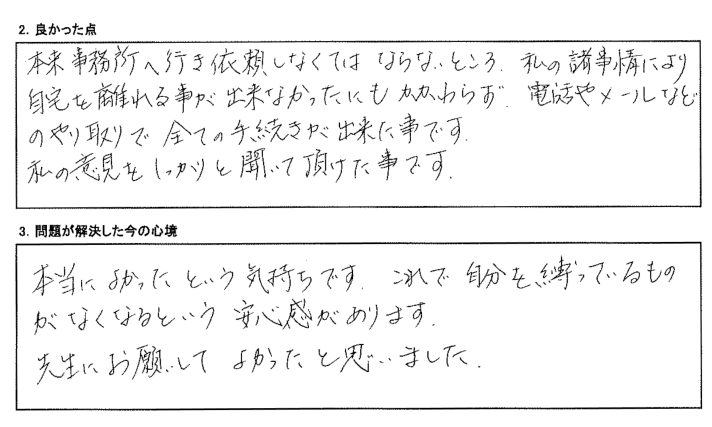 2. 良かった点
本来事務所へ行き依頼しなくてはならないところ、私の諸事情により
自宅を離れる事が出来なかったにもかかわらず、電話やメールなど
のやり取りで全ての手続きが出来た事です。
私の意見をしっかりと聞いて頂けた事です。
3. 問題が解決した今の心境
本当によかったという気持ちです。これで自分を縛っているもの
がなくなるという安心感があります。
先生にお願いしてよかったと思いました。